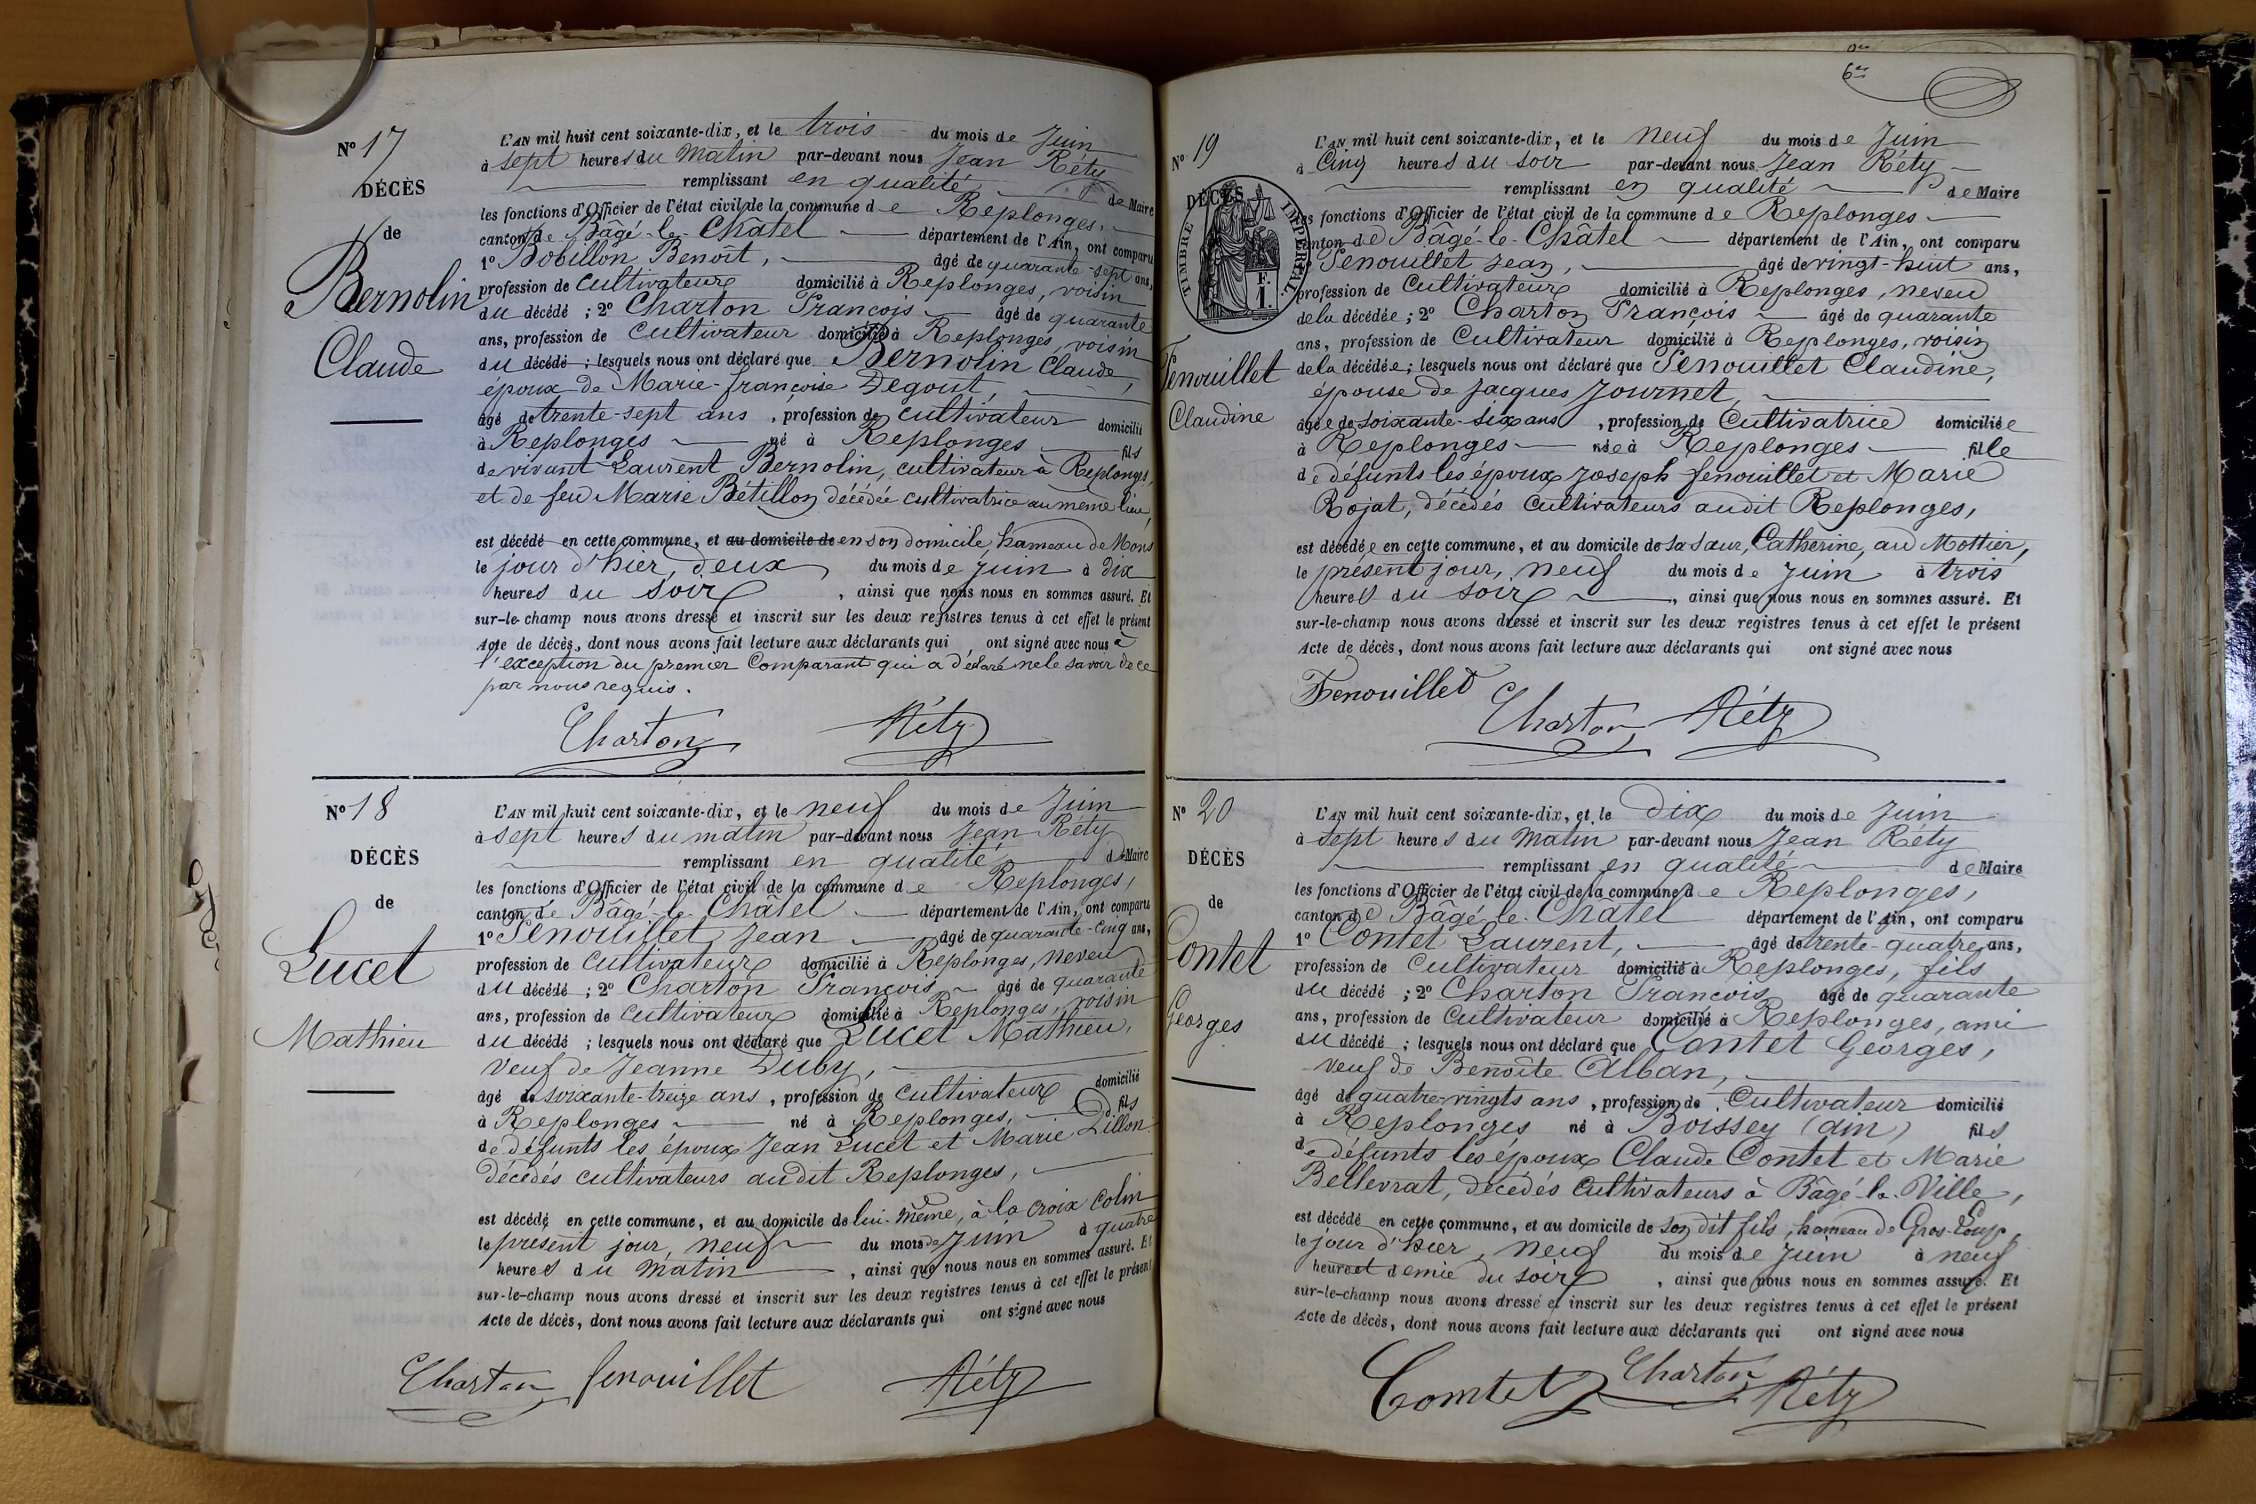 Nº 17
DÉCÈS
de
Bernolin
Claude
L'AN mil huit cent soixante-dix, et le trois du mois de Juin
à sept heures du matin par-devant nous Jean Réty
remplissant en qualité de Maire
les fonctions d'Officier de l'état civil de la commune de Replonges,
canton de Bâgé-le-Châtel département de l'Ain, ont comparu
1º Bobillon Benoît, âgé de quarante-sept ans,
profession de cultivateur domicilié à Replonges, voisin
du décédé ; 2º Charton François âgé de quarante
ans, profession de cultivateur domicilié à Replonges, voisin
du décédé ; lesquels nous ont déclaré que Bernolin Claude,
époux de Marie-françoise Degout,
âgé de trente-sept ans, profession de cultivateur domicilié
à Replonges né à Replonges fils
de vivant Laurent Bernolin, cultivateur à Replonges,
et de feu Marie Bétillon décédée cultivatrice au même lieu,
est décédé en cette commune, et au domicile de en son domicile, hameau de Mons
le jour d'hier, deux du mois de juin à dix
heures du soir, ainsi que nous nous en sommes assuré. Et
sur-le-champ nous avons dressé et inscrit sur les deux registres tenus à cet effet le présent
Acte de décès, dont nous avons fait lecture aux déclarants qui ont signé avec nous à
l'exception du premier comparant qui a déclaré ne le savoir de ce
par nous requis.
Charton Réty
Nº 18
DÉCÈS
de
Lucet
Mathieu
L'AN mil huit cent soixante-dix, et le neuf du mois de Juin
à sept heures du matin par-devant nous Jean Réty
remplissant en qualité de Maire
les fonctions d'Officier de l'état civil de la commune de Replonges,
canton de Bâgé-le-Châtel département de l'Ain, ont comparu
1º Fenouillet Jean âgé de quarante-cinq ans,
profession de cultivateur domicilié à Replonges, neveu
du décédé ; 2º Charton François âgé de quarante
ans, profession de cultivateur domicilié à Replonges, voisin
du décédé ; lesquels nous ont déclaré que Lucet Mathieu,
veuf de Jeanne Duby,
âgé de soixante-treize ans, profession de cultivateur domicilié
à Replonges né à Replonges, fils
de défunts les époux Jean Lucet et Marie Dillon
décédés cultivateurs audit Replonges,
est décédé en cette commune, et au domicile de lui-même, à la Croix Colin
le présent jour, neuf du mois de Juin à quatre
heures du matin, ainsi que nous nous en sommes assuré. Et
sur-le-champ nous avons dressé et inscrit sur les deux registres tenus à cet effet le présent
Acte de décès, dont nous avons fait lecture aux déclarants qui ont signé avec nous
Charton fenouillet Réty
6
Nº 19
DÉCÈS
TIMBRE IMPÉRIAL
1 F.
Fenouillet
Claudine
L'AN mil huit cent soixante-dix, et le neuf du mois de Juin
à Cinq heures du soir par-devant nous Jean Réty
remplissant en qualité de Maire
les fonctions d'Officier de l'état civil de la commune de Replonges
canton de Bâgé-le-Châtel département de l'Ain, ont comparu
Fenouillet Jean, âgé de vingt-huit ans,
profession de Cultivateur domicilié à Replonges, neveu
de la décédée ; 2º Charton François âgé de quarante
ans, profession de Cultivateur domicilié à Replonges, voisin
de la décédée ; lesquels nous ont déclaré que Fenouillet Claudine,
épouse de Jacques Journet,
âgée de soixante-six ans, profession de Cultivatrice domiciliée
à Replonges née à Replonges fille
de défunts les époux Joseph fenouillet et Marie
Rojat, décédés Cultivateurs audit Replonges,
est décédée en cette commune, et au domicile de sa sœur, Catherine, au Mottier,
le présent jour, neuf du mois de Juin à trois
heures du soir, ainsi que nous nous en sommes assuré. Et
sur-le-champ nous avons dressé et inscrit sur les deux registres tenus à cet effet le présent
Acte de décès, dont nous avons fait lecture aux déclarants qui ont signé avec nous
Fenouillet Charton Réty
Nº 20
DÉCÈS
de
Contet
Georges
L'AN mil huit cent soixante-dix, et le dix du mois de Juin
à sept heures du Matin par-devant nous Jean Réty
remplissant en qualité de Maire
les fonctions d'Officier de l'état civil de la commune de Replonges,
canton de Bâgé-le-Châtel département de l'Ain, ont comparu
1º Contet Laurent, âgé de trente-quatre ans,
profession de Cultivateur domicilié à Replonges, fils
du décédé ; 2º Charton François âgé de quarante
ans, profession de Cultivateur domicilié à Replonges, ami
du décédé ; lesquels nous ont déclaré que Contet Georges,
veuf de Benoîte Alban,
âgé de quatre-vingts ans, profession de Cultivateur domicilié
à Replonges né à Boissey (ain) fils
de défunts les époux Claude Contet et Marie
Bellevrat, décédés Cultivateurs à Bâgé-la-Ville,
est décédé en cette commune, et au domicile de son dit fils, hameau de Gros-Loup,
le jour d'hier, neuf du mois de Juin à neuf
heures et demie du soir, ainsi que nous nous en sommes assuré. Et
sur-le-champ nous avons dressé et inscrit sur les deux registres tenus à cet effet le présent
Acte de décès, dont nous avons fait lecture aux déclarants qui ont signé avec nous
Comtet Charton Réty